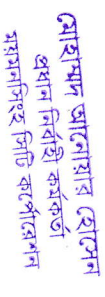 মোহাম্মদ আনোয়ার হোসেন
প্রধান নির্বাহী কর্মকর্তা
ময়মনসিংহ সিটি কর্পোরেশন